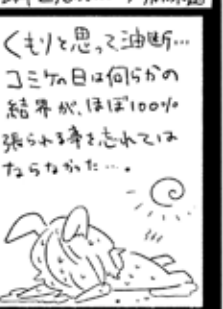 くもりと思って油断…
コミケの日は何らかの
結界が、ほぼ100%
張られる事を忘れては
ならなかった…。